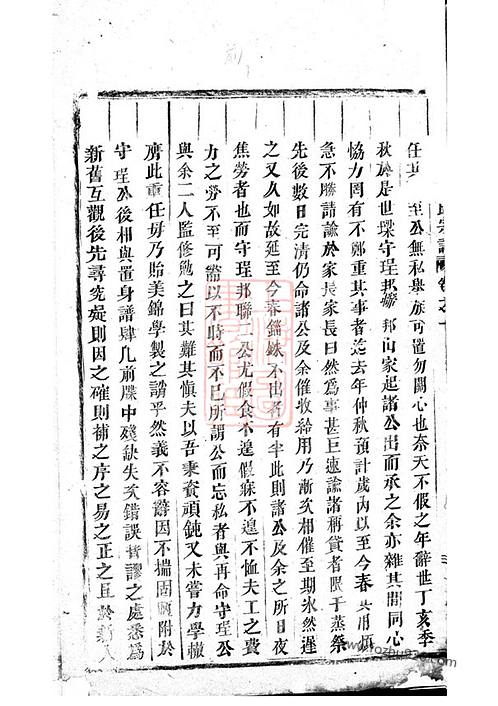 至公無私舉族可置勿關心也奈天不假之年辭世丁亥季
秋於是世墚守琞邦 邦 家起諸公出而承之余亦雜其間同心
協力罔有不鄭重其事者迄去年仲秋預計歲內以至今春共用煩
急不勝請諭於家長家長曰然為事甚巨速諭諸稱貸者限于蒸祭
先後數日完清仍命諸公及余催收給用乃漸次相催至期氷然遲
之又久如故延至今春錙銖不出者有半此則諸公及余之所日夜
焦勞者也而守琞邦聯二公尤假食不遑假寐不遑不恤夫工之費
力之勞不至可需以不時而不已所謂公而忘私者與再命守琞公
與余二人監修勉之曰其難其慎夫以吾秉資頑鈍又未嘗力學輙
膺此重任毋乃貽美錦學製之誚乎然義不容辭因不揣固陋附於
守琞公後相與置身譜肆几前牒中殘缺失次錯誤 謬之處悉為
新舊互觀後先尋究疑則因之確則補之序之易之正之且於新入
www.fozhu920.com